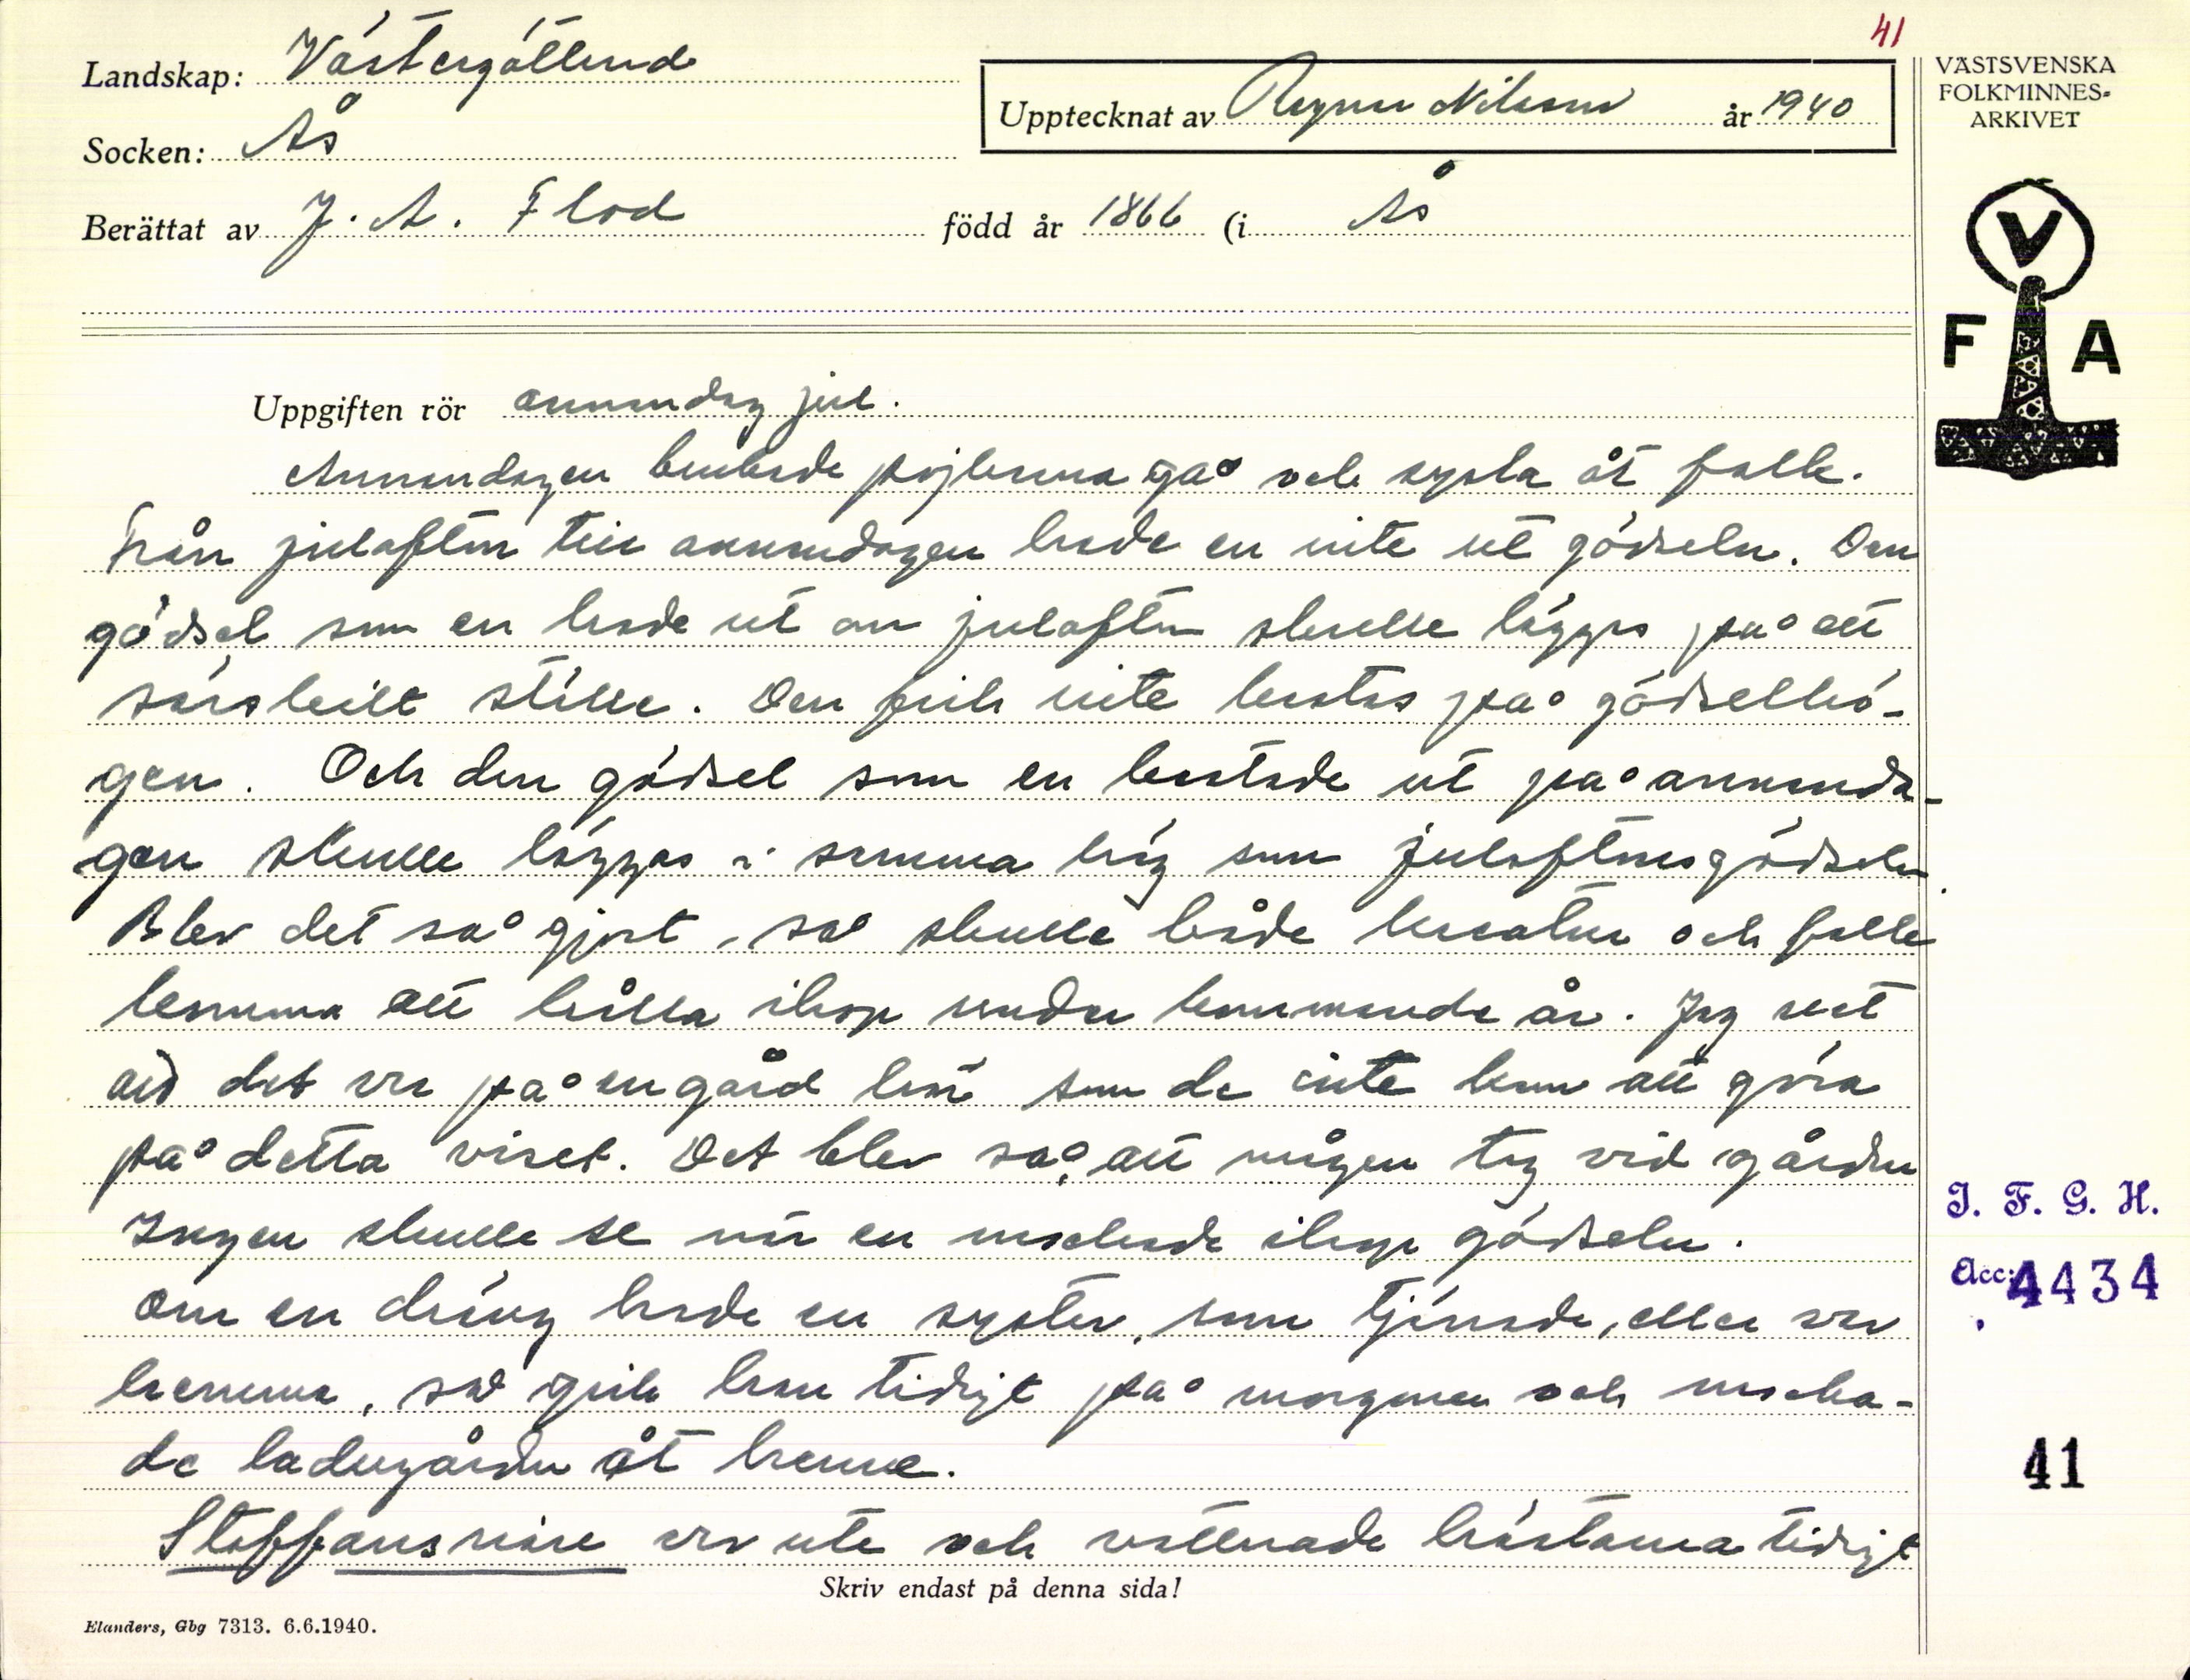 41
Landskap: Västergötland
Socken: Ås
Upptecknat av Ragnar Nilsson år 1940
Berättat av J. A. Flod född år 1866 (i Ås
VÄSTSVENSKA
FOLKMINNES-
ARKIVET
V
F A
Uppgiften rör annandag jul.
Annandagen brukade pojkarna gå och syssla åt folk.
Från julafton till annandagen hade en inte ut gödseln. Den
gödsel som en hade ut om julafton skulle läggas på ett
särskilt ställe. Den fick inte kastas på gödselhö-
gen. Och den gödsel som en kastade ut på annanda-
gen skulle läggas i samma hög som julaftonsgödseln.
Blev det så gjort, så skulle både kreatur och folk
komma att hålla ihop under kommande år. Jag vet
att det var på en gård här som de inte kom att göra
på detta viset. Det blev så, att någon tog vid gården
Ingen skulle se när en mockade ihop gödseln.
Om en dräng hade en syster, som tjänade, eller var
hemma, så gick han tidigt på morgonen och mocka-
de ladugården åt henne.
Staffansridare var ute och vattnade hästarna tidigt
Skriv endast på denna sida!
Elanders, Gbg 7313. 6.6.1940.
I. F. G. H.
Acc: 4434
41